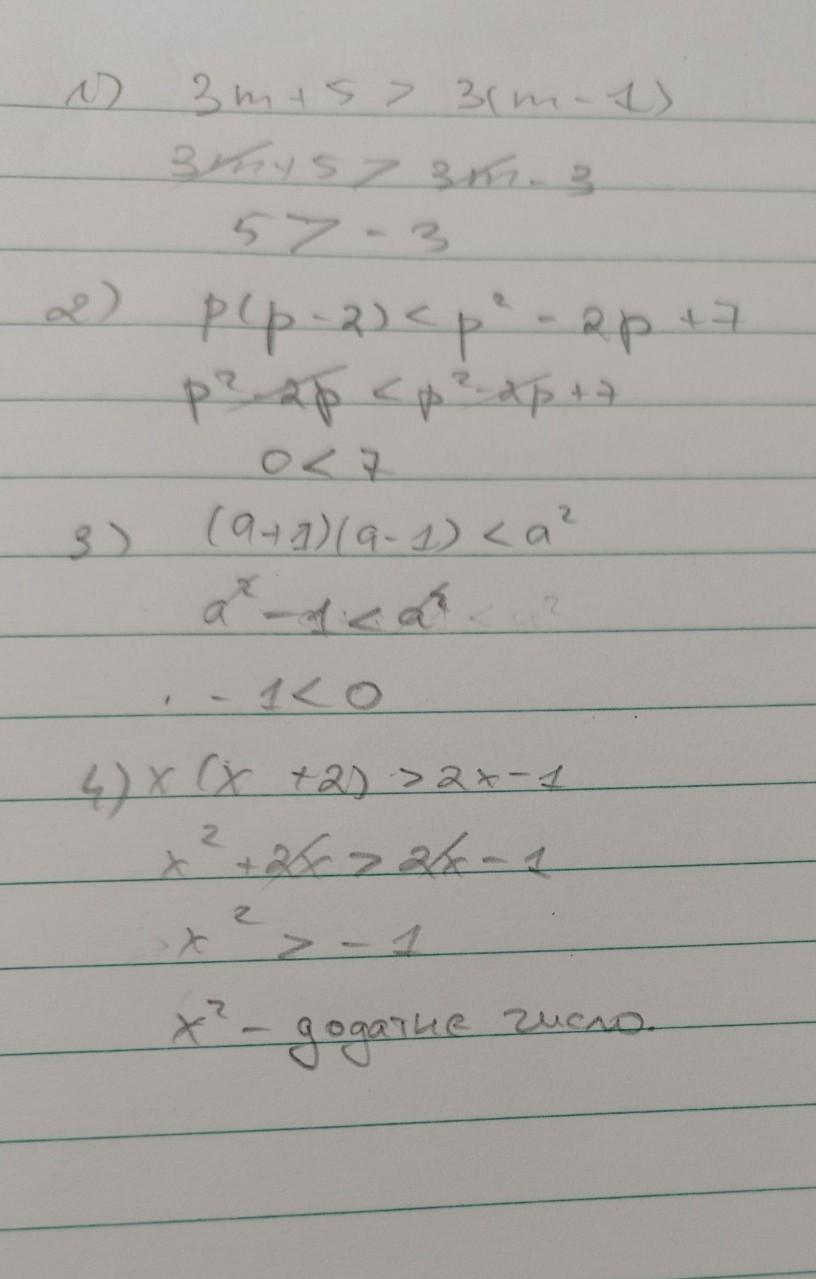 1) 3m+5 > 3(m-1)
3m+5 > 3m-3
5 > -3
2) p(p-2) < p² - 2p +7
p²-2p < p²-2p+7
0 < 7
3) (a+1)(a-1) < a²
a² - 1 < a² < a²
- 1 < 0
4) x (x +2) > 2x-1
x² + 2x > 2x - 1
x² > - 1
x² - додатне число.